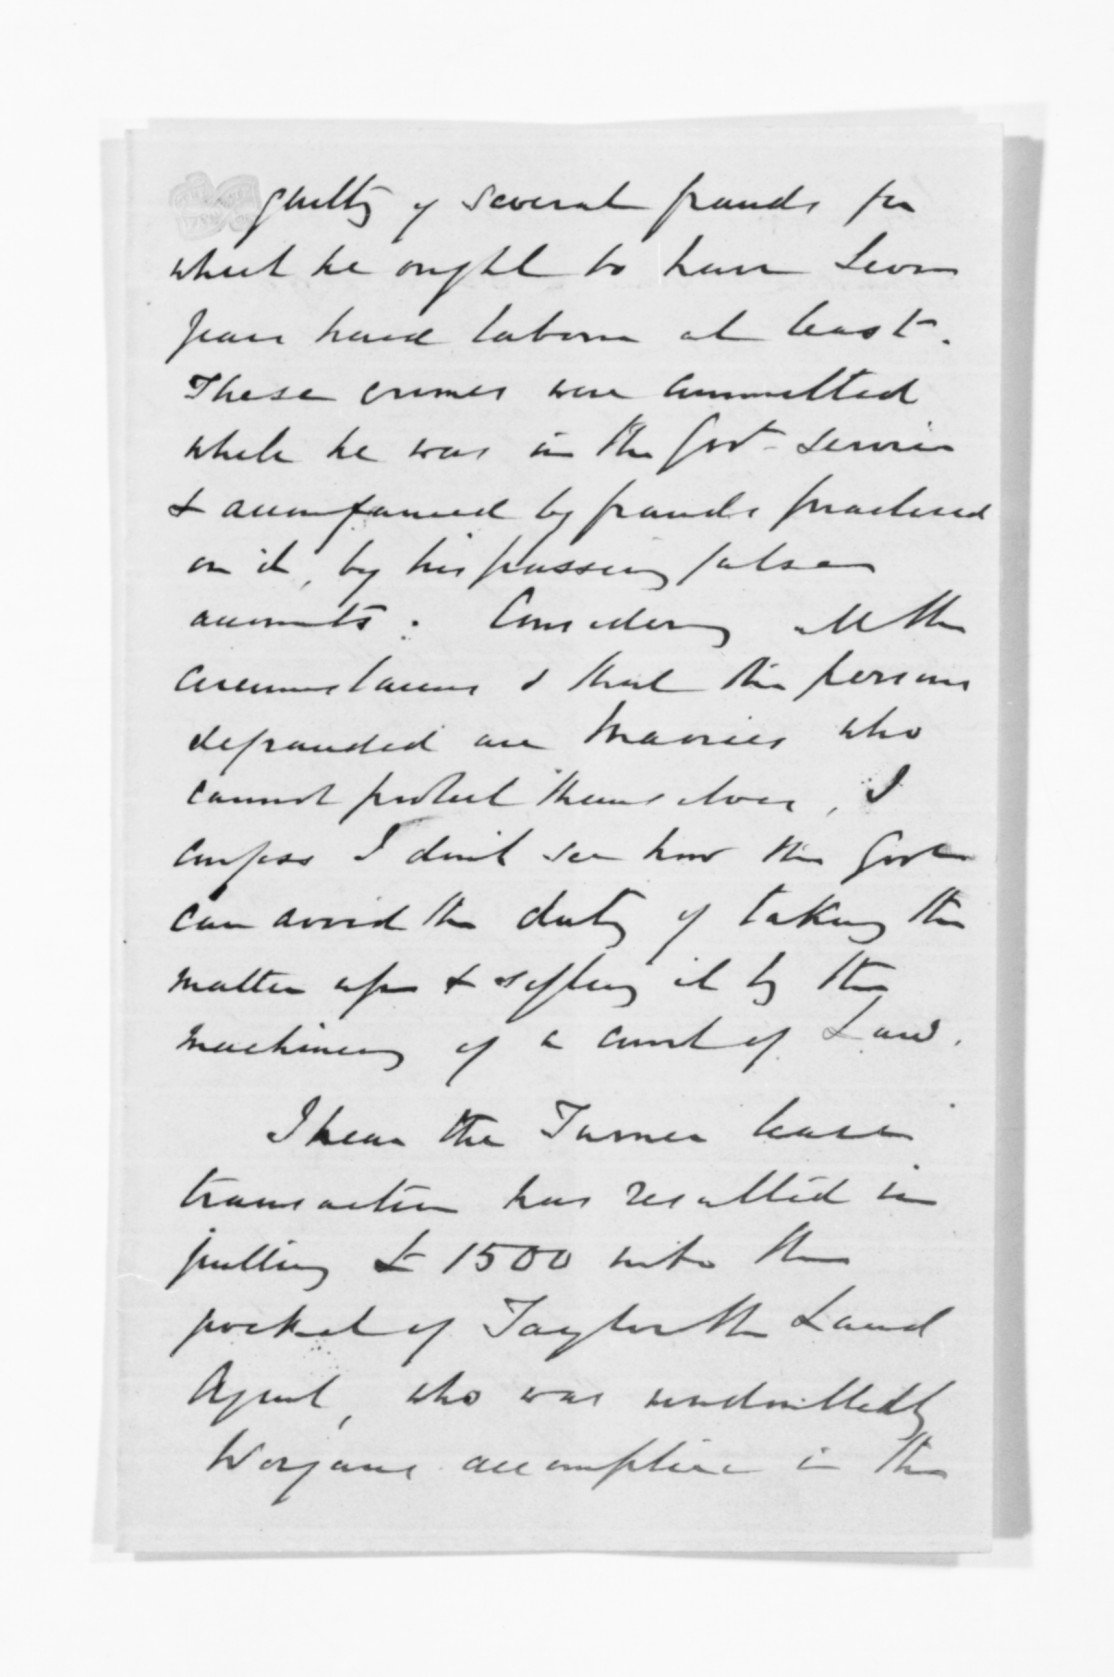 guilty of several frauds for
which he ought to have seven
years hard labour at least.
These crimes were committed
while he was in the Govt service
& accompanied by frauds practised
on it, by his passing false
accounts. Considering all the
circumstances & that the persons
defrauded are Maories who
cannot protect themselves, I
confess I don't see how the Govt
can avoid the duty of taking the
matter up & sifting it by the
machinery of a court of Law.
I hear the Turner lease
transaction has resulted in
putting £1500 into the
pocket of Taylor the Land
Agent, who was undoubtedly
Worgans accomplice in the